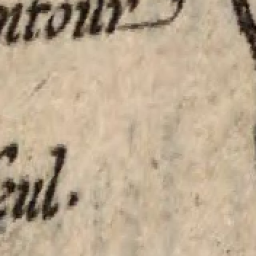 ntour
seul.